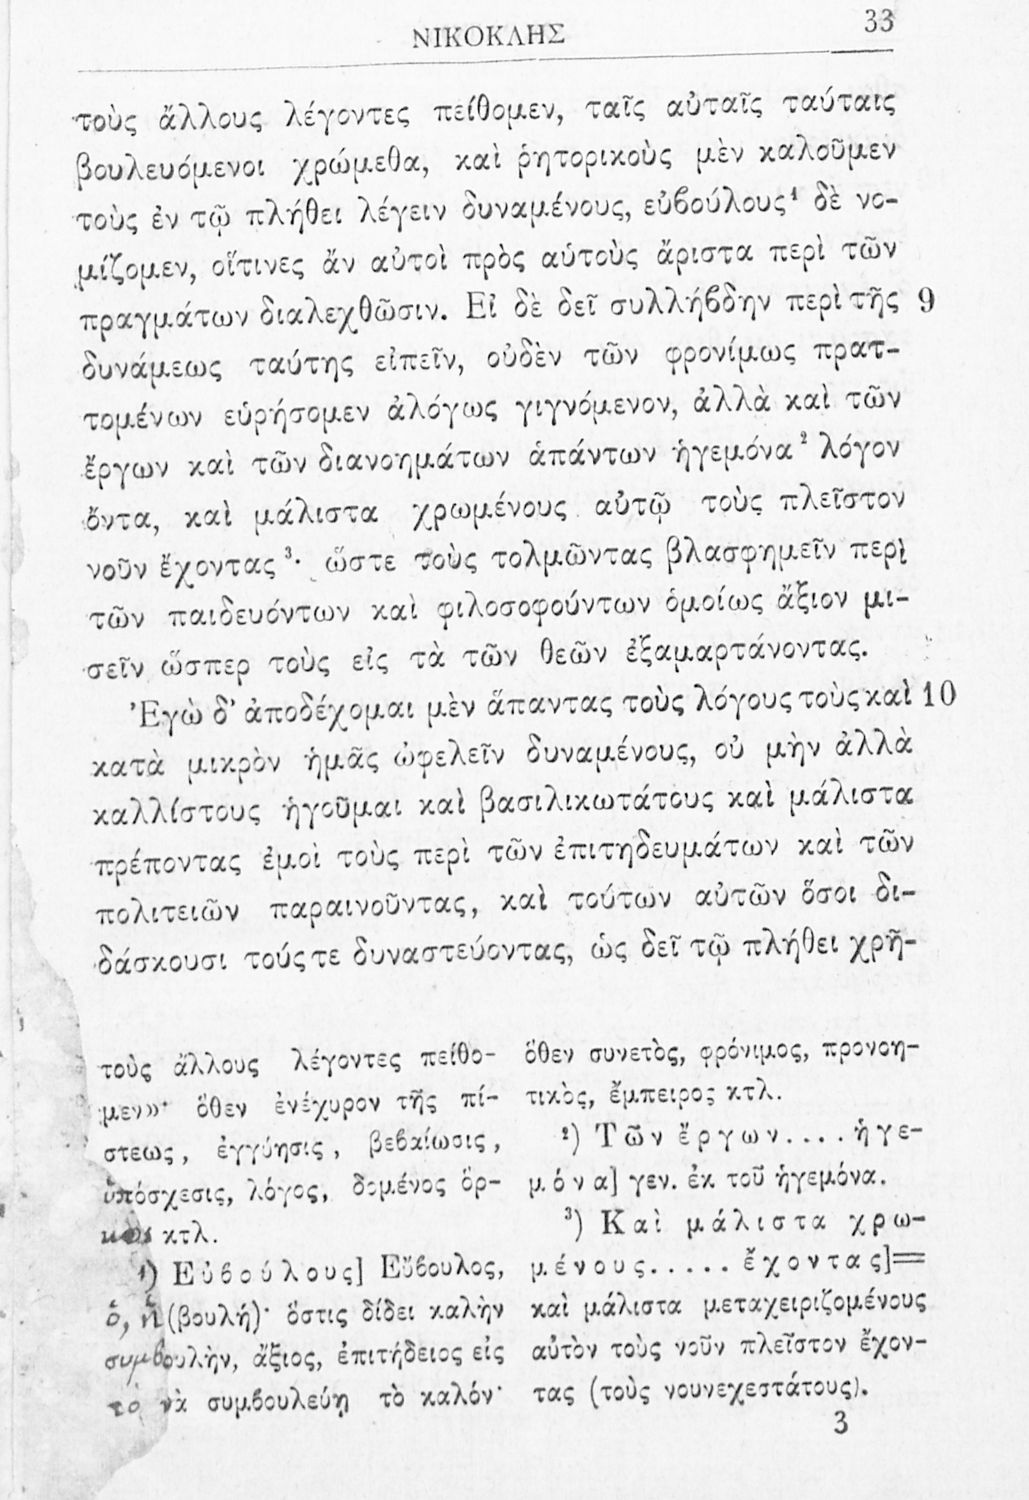 ΝΙΚΟΚΛΗΣ 33
τοὺς ἄλλους λέγοντες πείθομεν, ταῖς αὐταῖς ταύταις
βουλευόμενοι χρώμεθα, καὶ ῥητορικοὺς μὲν καλοῦμεν
τοὺς ἐν τῷ πλήθει λέγειν δυναμένους, εὐβούλους¹ δὲ νο-
μίζομεν, οἵτινες ἄν αὐτοὶ πρὸς αὑτοὺς ἄριστα περὶ τῶν
πραγμάτων διαλεχθῶσιν. Εἰ δὲ δεῖ συλλήβδην περὶ τῆς 9
δυνάμεως ταύτης εἰπεῖν, οὐδὲν τῶν φρονίμως πρατ-
τομένων εὑρήσομεν ἀλόγως γιγνόμενον, ἀλλὰ καὶ τῶν
ἔργων καὶ τῶν διανοημάτων ἁπάντων ἡγεμόνα² λόγον
ὄντα, καὶ μάλιστα χρωμένους αὐτῷ τοὺς πλεῖστον
νοῦν ἔχοντας³· ὥστε τοὺς τολμῶντας βλασφημεῖν περὶ
τῶν παιδευόντων καὶ φιλοσοφούντων ὁμοίως ἄξιον μι-
σεῖν ὥσπερ τοὺς εἰς τὰ τῶν θεῶν ἐξαμαρτάνοντας.
Ἐγὼ δ' ἀποδέχομαι μὲν ἅπαντας τοὺς λόγους τοὺς καὶ 10
κατὰ μικρὸν ἡμᾶς ὠφελεῖν δυναμένους, οὐ μὴν ἀλλὰ
καλλίστους ἡγοῦμαι καὶ βασιλικωτάτους καὶ μάλιστα
πρέποντας ἐμοὶ τοὺς περὶ τῶν ἐπιτηδευμάτων καὶ τῶν
πολιτειῶν παραινοῦντας, καὶ τούτων αὐτῶν ὅσοι δι-
δάσκουσι τούς τε δυναστεύοντας, ὡς δεῖ τῷ πλήθει χρῆ-
τοὺς ἄλλους λέγοντες πείθο-
μεν»· ὅθεν ἐνέχυρον τῆς πί-
στεως, ἐγγύησις, βεβαίωσις,
ὑπόσχεσις, λόγος, δομένος ὅρ-
κος κτλ.
¹) Εὐβούλους] Εὔβουλος,
ὁ, ἡ (βουλή)· ὅστις δίδει καλὴν
συμβουλὴν, ἄξιος, ἐπιτήδειος εἰς
τὸ νὰ συμβουλεύῃ τὸ καλόν·
ὅθεν συνετὸς, φρόνιμος, προνοη-
τικὸς, ἔμπειρος κτλ.
²) Τῶν ἔργων.... ἡγε-
μόνα] γεν. ἐκ τοῦ ἡγεμόνα.
³) Καὶ μάλιστα χρω-
μένους..... ἔχοντας]=
καὶ μάλιστα μεταχειριζομένους
αὐτὸν τοὺς νοῦν πλεῖστον ἔχον-
τας (τοὺς νουνεχεστάτους).
3